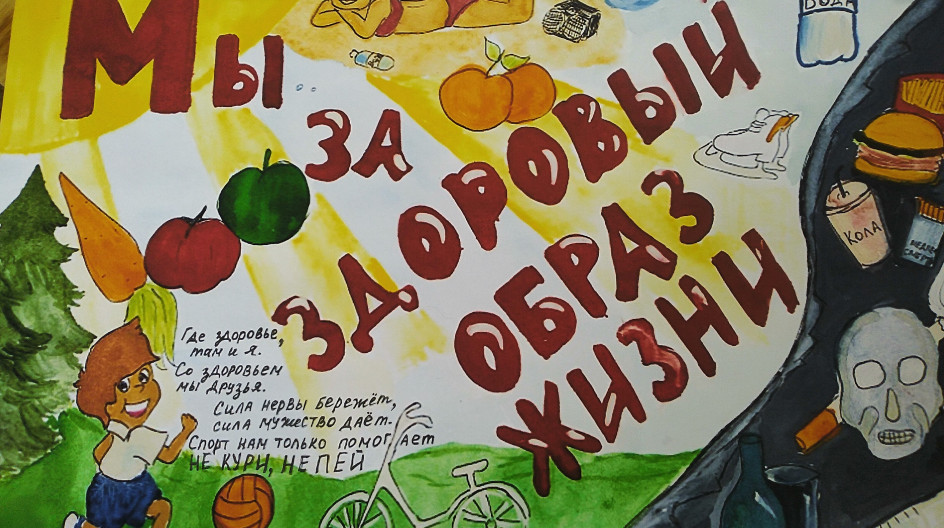 Мы
ЗА
ЗДОРОВЫЙ
ОБРАЗ
ЖИЗНИ
ВОДА
КОЛА
Где здоровье,
там и я.
Со здоровьем
мы друзья.
Сила нервы бережёт,
сила мужество даёт.
Спорт нам только помогает
НЕ КУРИ, НЕ ПЕЙ